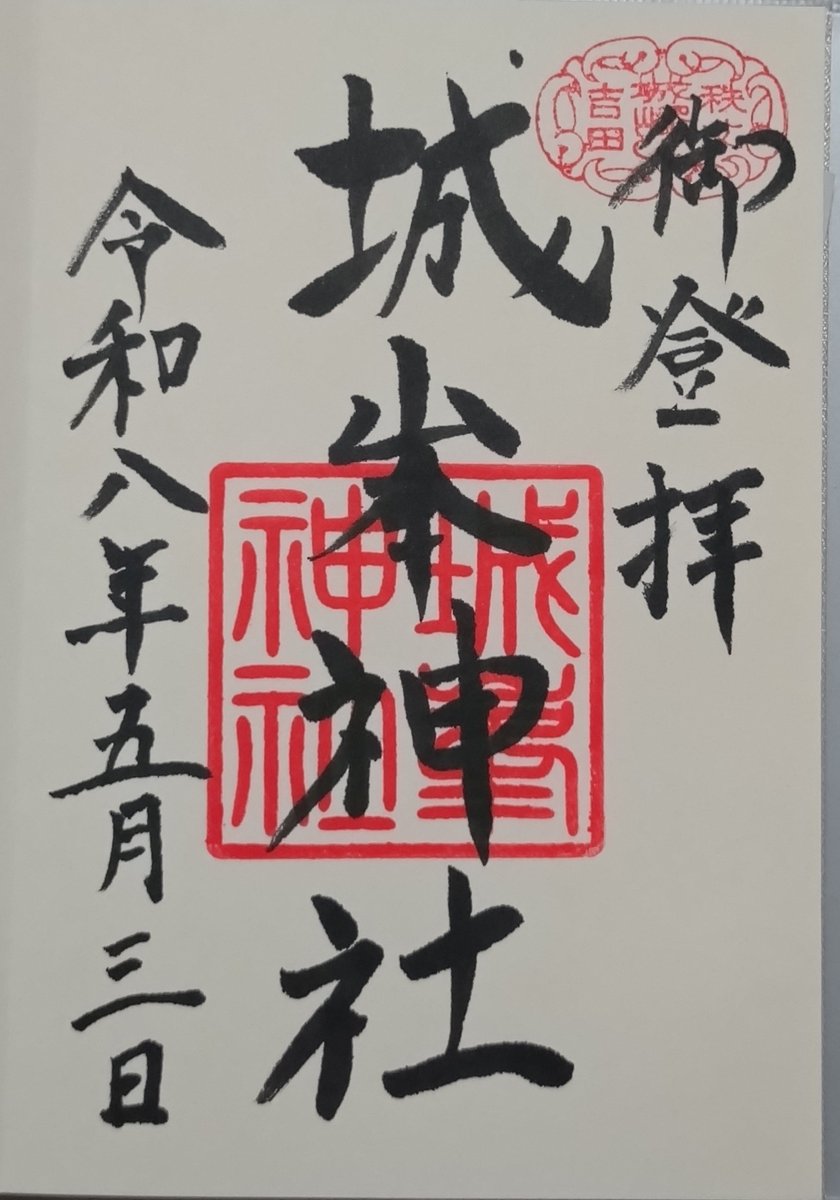 御登拝
城峯神社
令和八年五月三日
吉田
城峯
神社